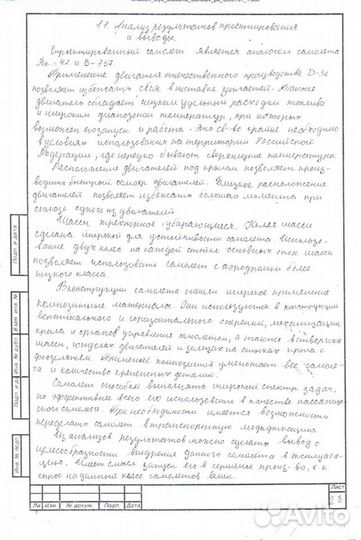 1.8 Анализ результатов проектирования
и выводы.
Спроектированный самолет является аналогом самолета
Як-42 и B-737.
Применение двигателя отечественного производства Д-36
позволяет избежать связи в поставке запчастей. Также
двигатель обладает низким удельным расходом топлива
и широким диапазоном температур, при которых
возможен его запуск и работа. Это св-во крайне необходимо
в условиях использования на территории Российской
Федерации, где нередко бывают сверхнизкие температуры.
Расположение двигателей под крылом позволяет произ-
водить быстрый осмотр двигателей. Близкое расположение
двигателей позволяет избежать большого момента при
отказе одного из двигателей
Шасси трехопорное убирающееся. Колея шасси
сделана широкой для устойчивости самолета. Использо-
вание двух колес на каждой стойке основных опор шасси
позволяет использовать самолет с аэродромов более
низкого класса.
В конструкции самолета нашли широкое применение
композитные материалы. Они используются в конструкции
вертикального и горизонтального оперений, механизации
крыла и органов управления самолетом, а также в створках
шасси, капотах двигателей и зализах на стыках крыла с
фюзеляжем. Применение композитов уменьшает вес самоле-
та и количество крепежных деталей.
Самолет способен выполнять широкий спектр задач,
но эффективнее всего его использовать в качестве пассажир-
ского самолета. При необходимости имеется возможность
переделать самолет в транспортную модификацию.
Из анализа результатов можно сделать вывод о
целесообразности внедрения данного самолета в эксплуата-
цию. Имеет смысл запуск его в серийное произ-во, т.к.
спрос на данный класс самолетов велик.
Подп. и дата
Инв. № дубл.
Взам. инв. №
Подп. и дата
Инв. № подл.
Ли
Изм.
№ докум.
Подп.
Дата
Лист
28
Avito